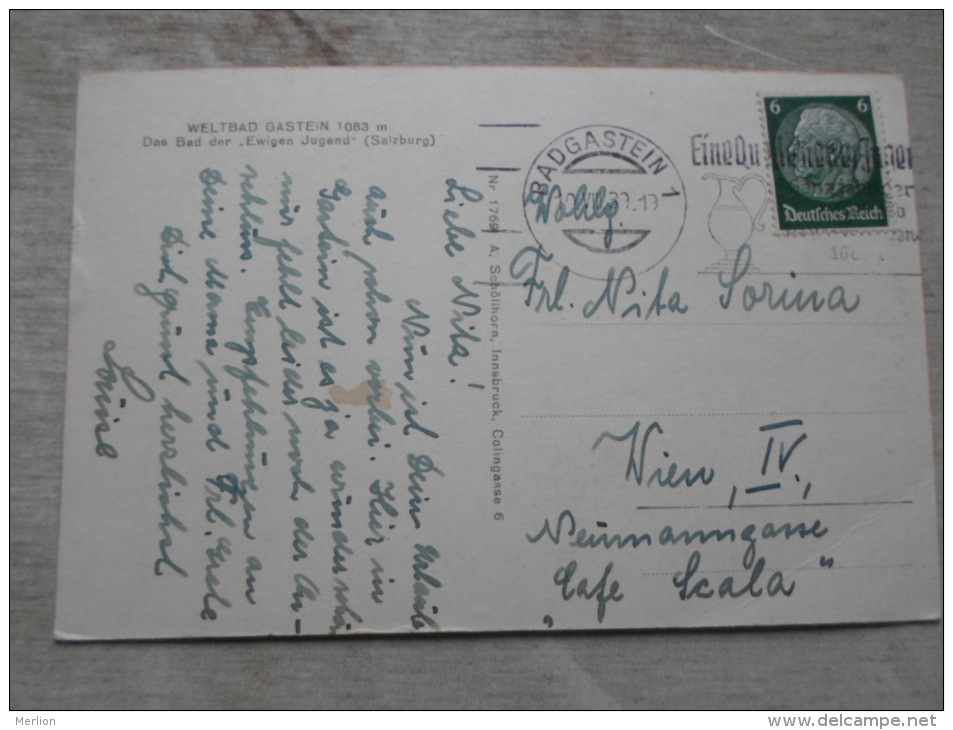 WELTBAD GASTEIN 1083 m
Das Bad der „Ewigen Jugend" (Salzburg)
Nr. 1769 A. Schöllhorn, Innsbruck, Colingasse 6
Liebe Nita!
Nun ist Dein Urlaub
auch schon vorbei. Hier in
Gastein ist es ja wunderschön
mir fehlt leider noch der An-
schluss. Empfehlungen an
Deine Mama und Frl.
Dich grüsst herzlichst
BADGASTEIN 1
6 6
Deutsches Reich
Wohlg.
Frl. Nita Sorina
Wien, IV.,
Neumanngasse
„Cafe Scala"
Merlion
www.delcampe.net